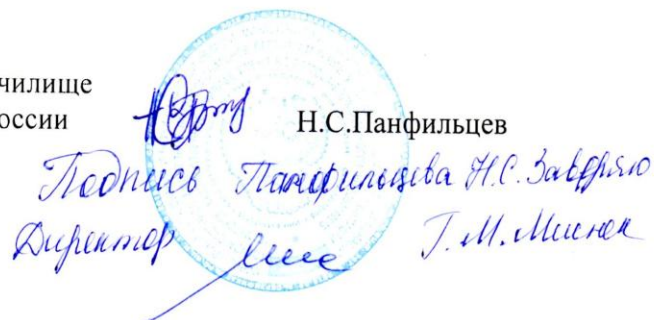 чилище
оссии Н.С.Панфильцев
Подпись Панфильцева Н.С. Заверяю
Директор Г.М.